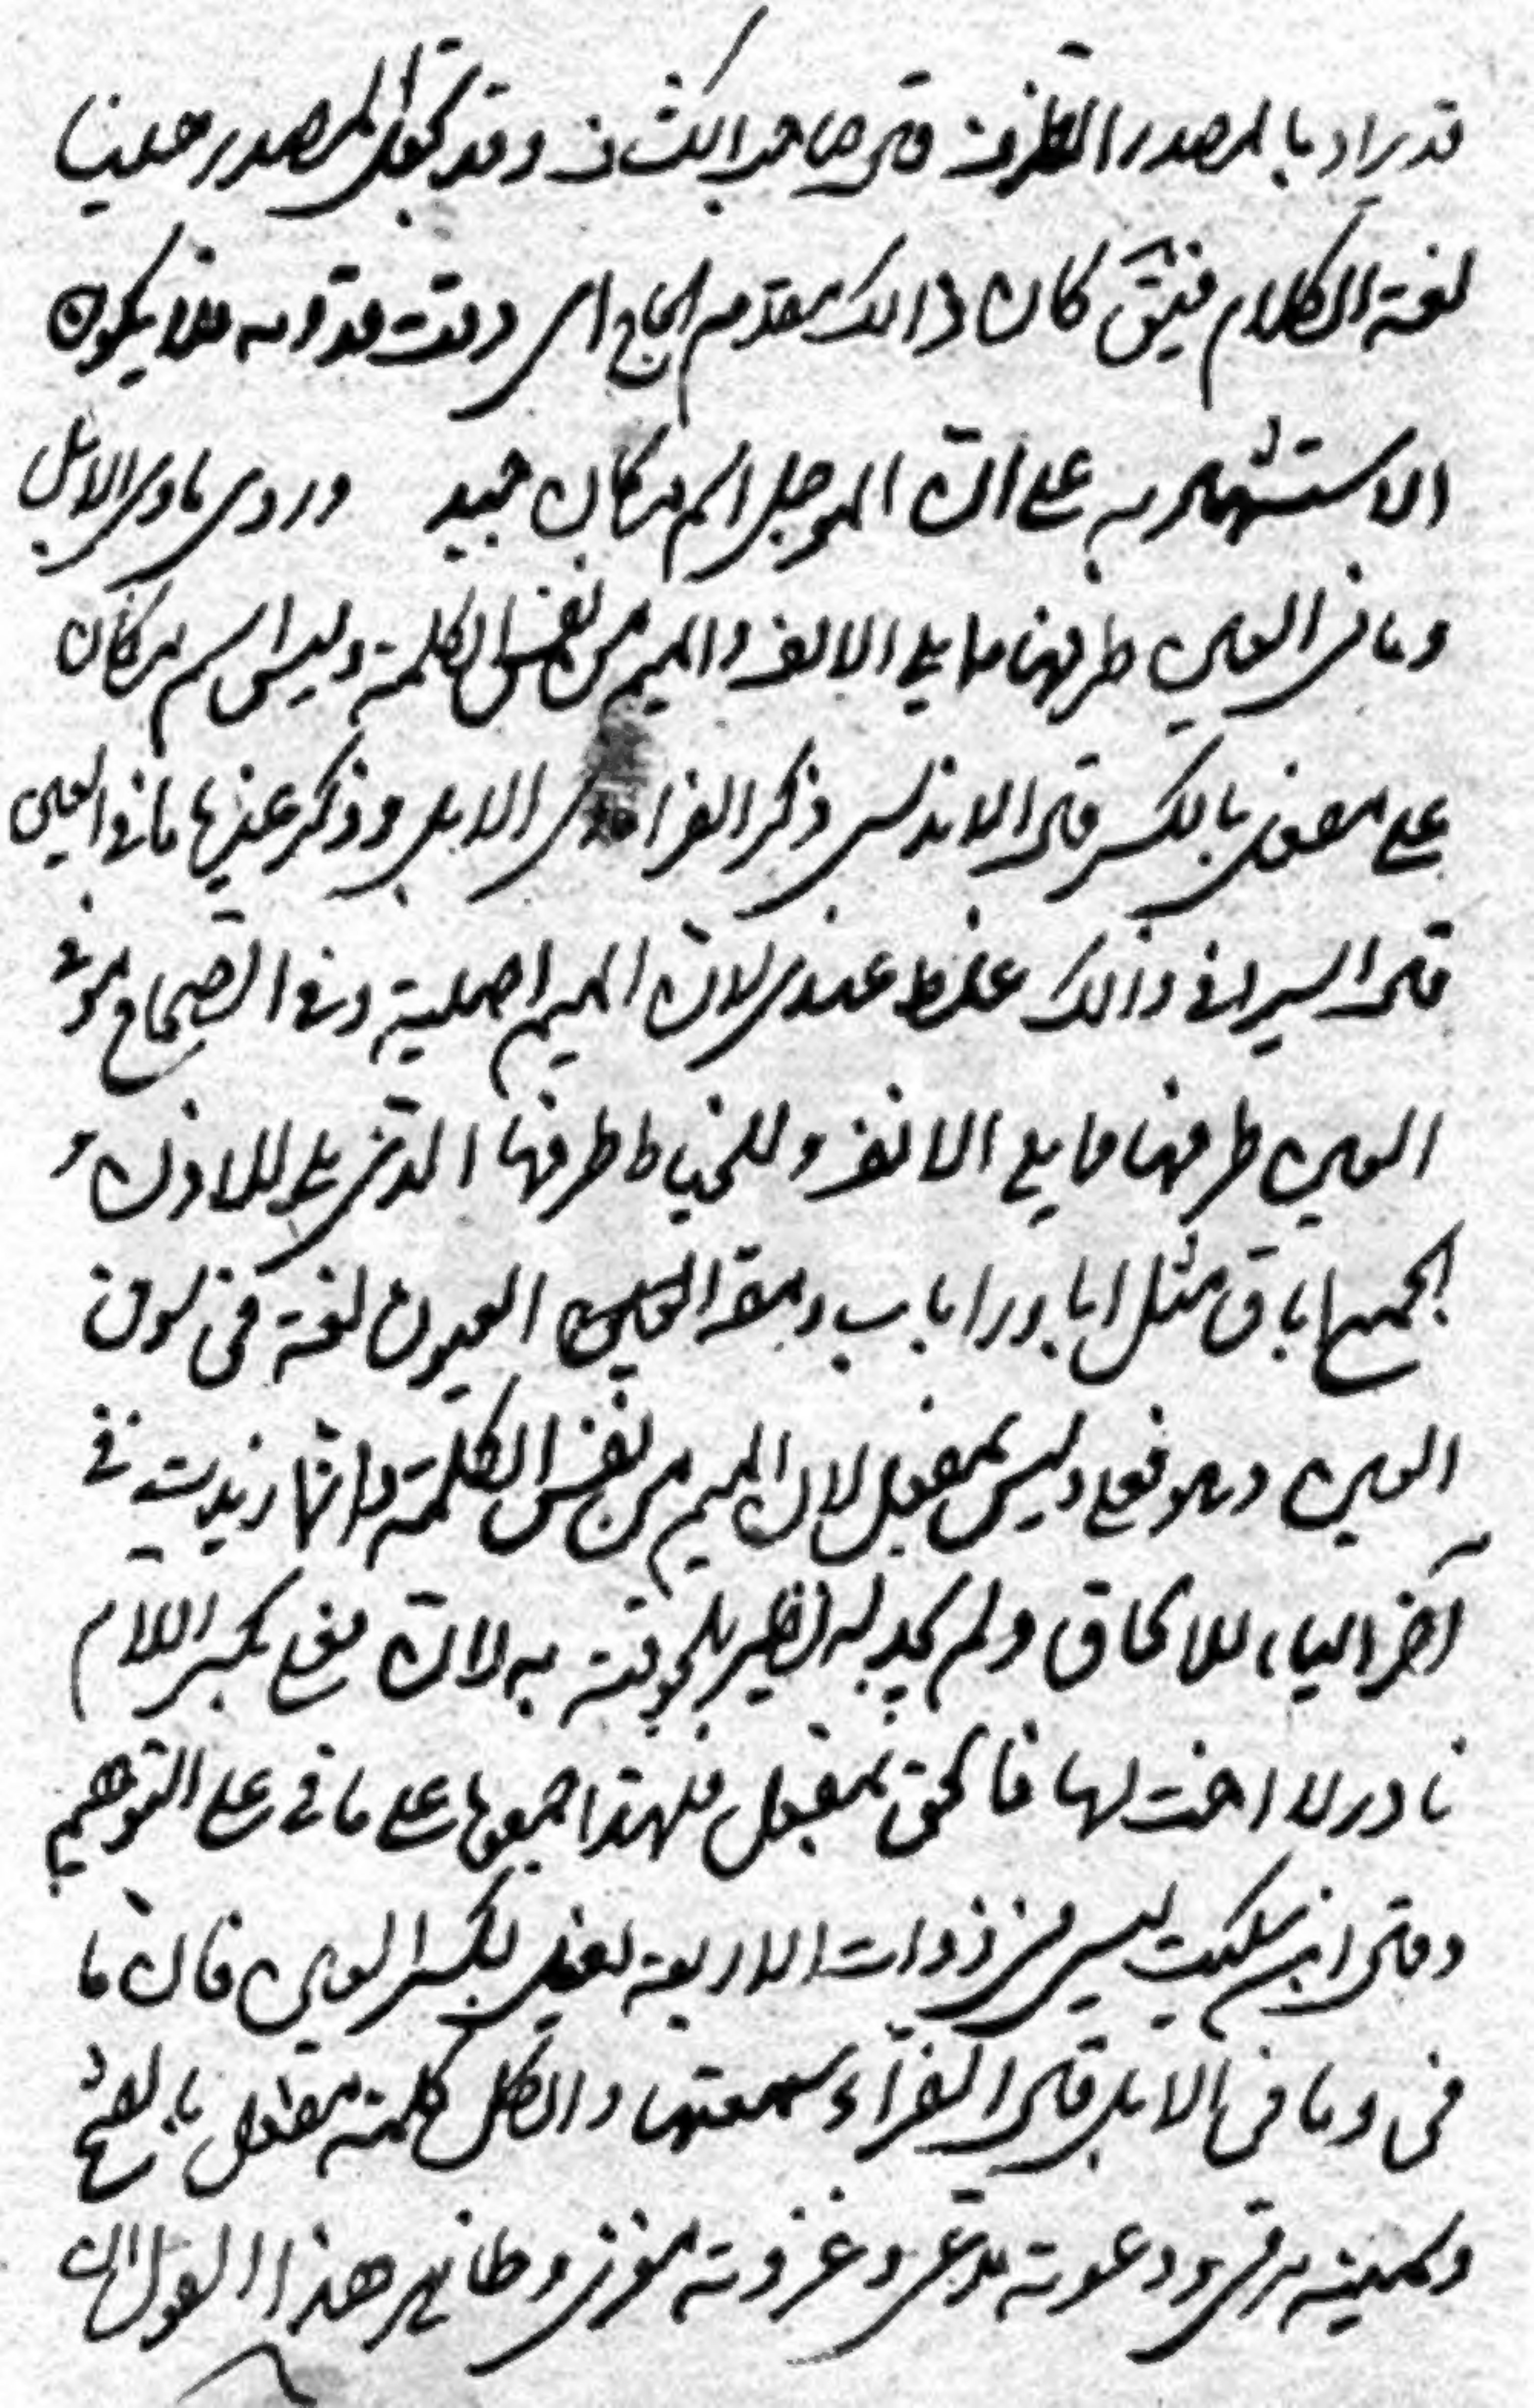 قد يراد بالمصدر الظرف قال صاحب الكشاف وقد يجعل المصدر حينا
لغة الكلام فيق كان ذالك مقدم الحاج اى وقت قدومه فلا يكون
الاستشهاد به على ان الموجل اسم مكان جيد وروى ماوى الابل
وماقى العين طرفها مما يلى الانف والميم من نفس الكلمة وليس اسم مكان
على مفعل بالكسر قال الاندلسى ذكر الفراء ماوى الابل وذكر غيرها ماقى العين
قال السيرافى وذالك غلط عندى لان الميم اصلية وفى الصحاح موق
العين طرفها مما يلى الانف وللحاظ طرفها الذى يلى الاذن و
الجمع اماق مثل ابار واراباب ومقا العين العيون لغة فى موق
العين وهو فعلى وليس بمفعل لان الميم من نفس الكلمة وانما زيدت فى
آخر الياء للالحاق ولم يجد له نظير يلحقونه به لان فعلى بكسر اللام
نادر لا اخت لها فالحق بمفعل فلهذا جمعوها على ماقى على التوهم
وقال ابن سكيت ليس من ذوات الاربعة مفعل بكسر العين فان ما
قى وماقى الابل قال الفراء سمعتها والكل كلمة مفعل بالفتح
ورميته مرمى ودعوته مدعى وغزوته مغزى وظاهر هذا القول ان